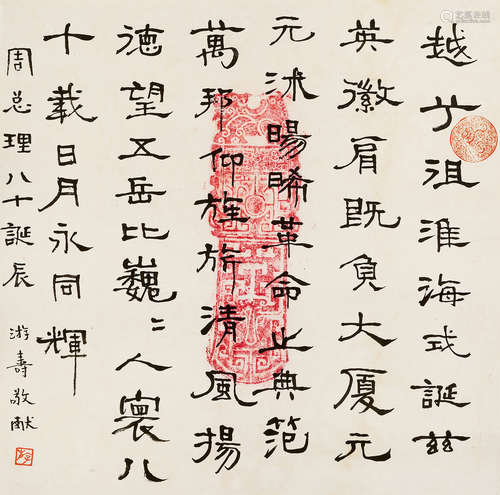 越徂淮海式誕兹
英徽肩既負大厦元
元沐暘晞革命止典范
萬邦仰旌旂清風揚
德望五岳比巍〻人寰八
十載日月永同輝
周总理八十誕辰 游壽敬献